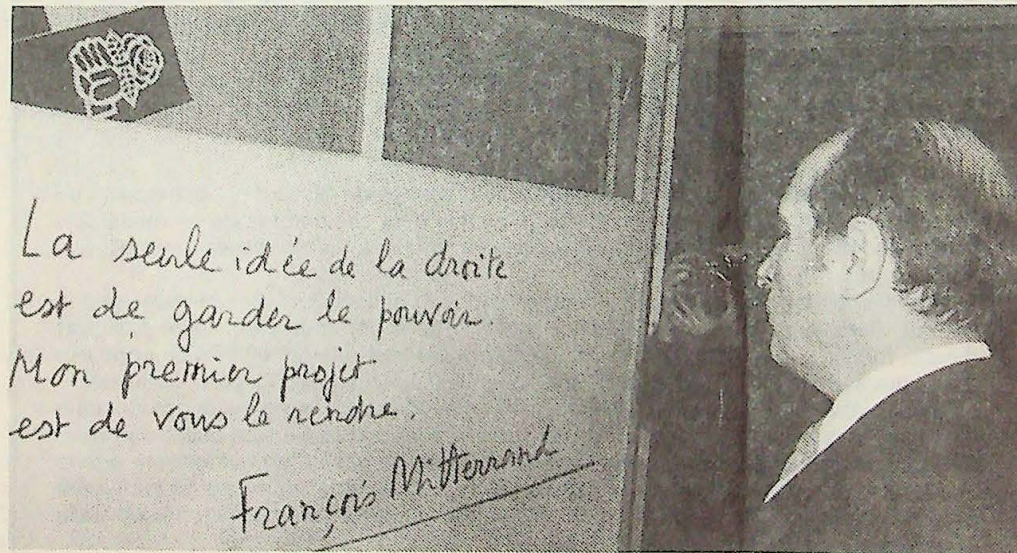 La seule idée de la droite
est de garder le pouvoir.
Mon premier projet
est de vous le rendre.
François Mitterrand